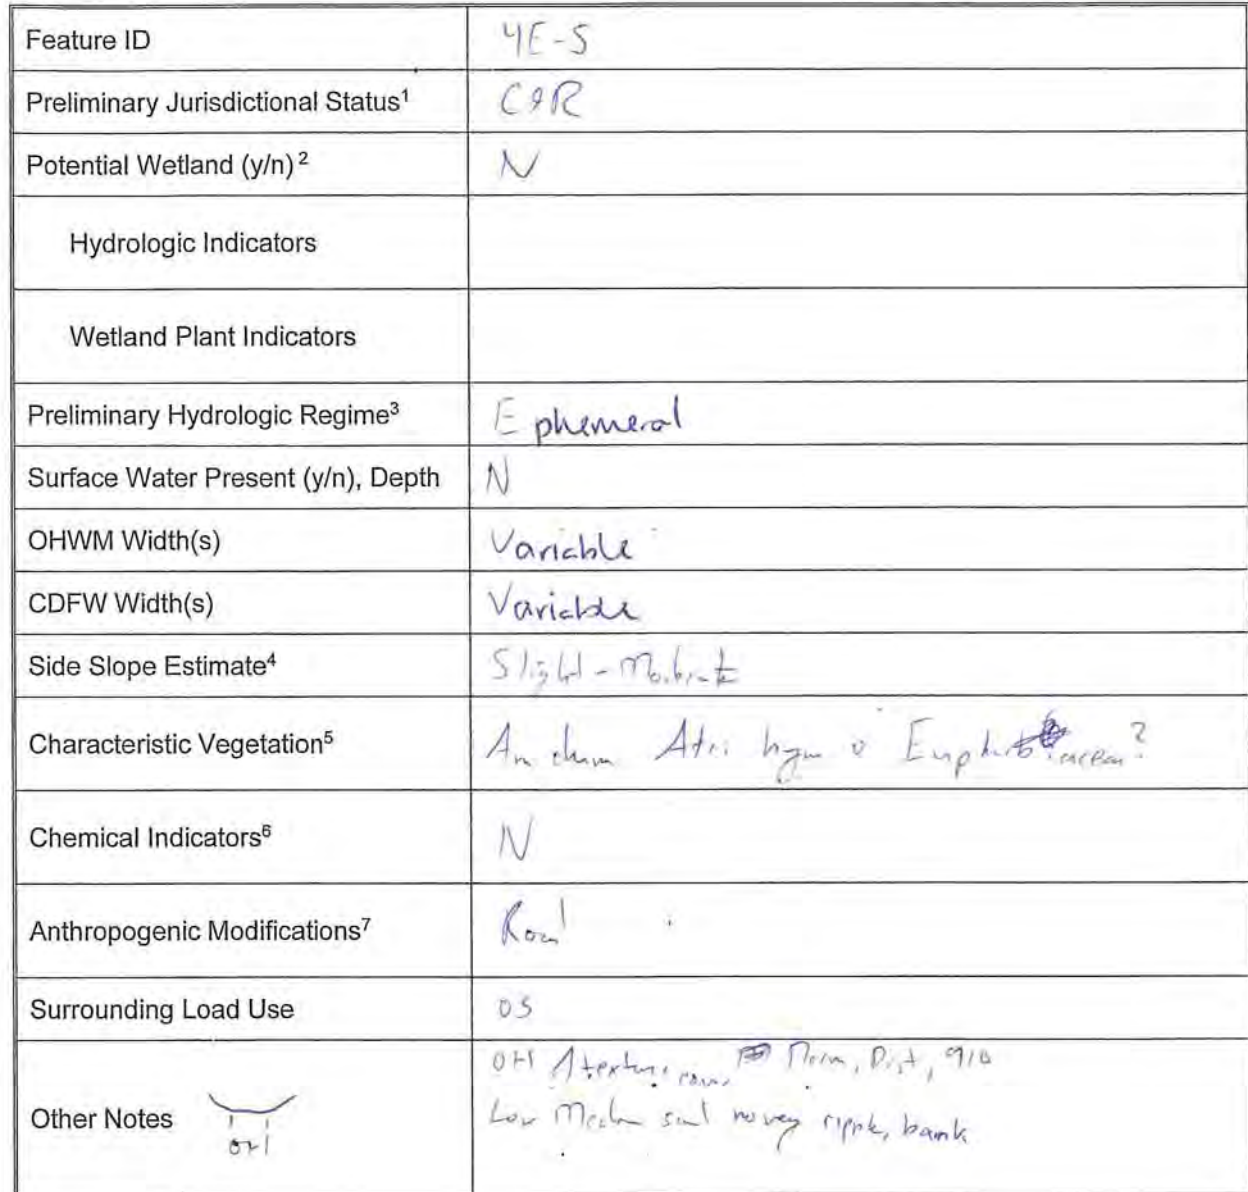 Feature ID 4E-5
Preliminary Jurisdictional Status¹ C&R
Potential Wetland (y/n) ² N
Hydrologic Indicators
Wetland Plant Indicators
Preliminary Hydrologic Regime³ Ephemeral
Surface Water Present (y/n), Depth N
OHWM Width(s) Variable
CDFW Width(s) Variable
Side Slope Estimate⁴ Slight - Moderate
Characteristic Vegetation⁵ Atri hym
Chemical Indicators⁶ N
Anthropogenic Modifications⁷ Road
Surrounding Load Use OS
OH
Other Notes Low no veg ripple, bank